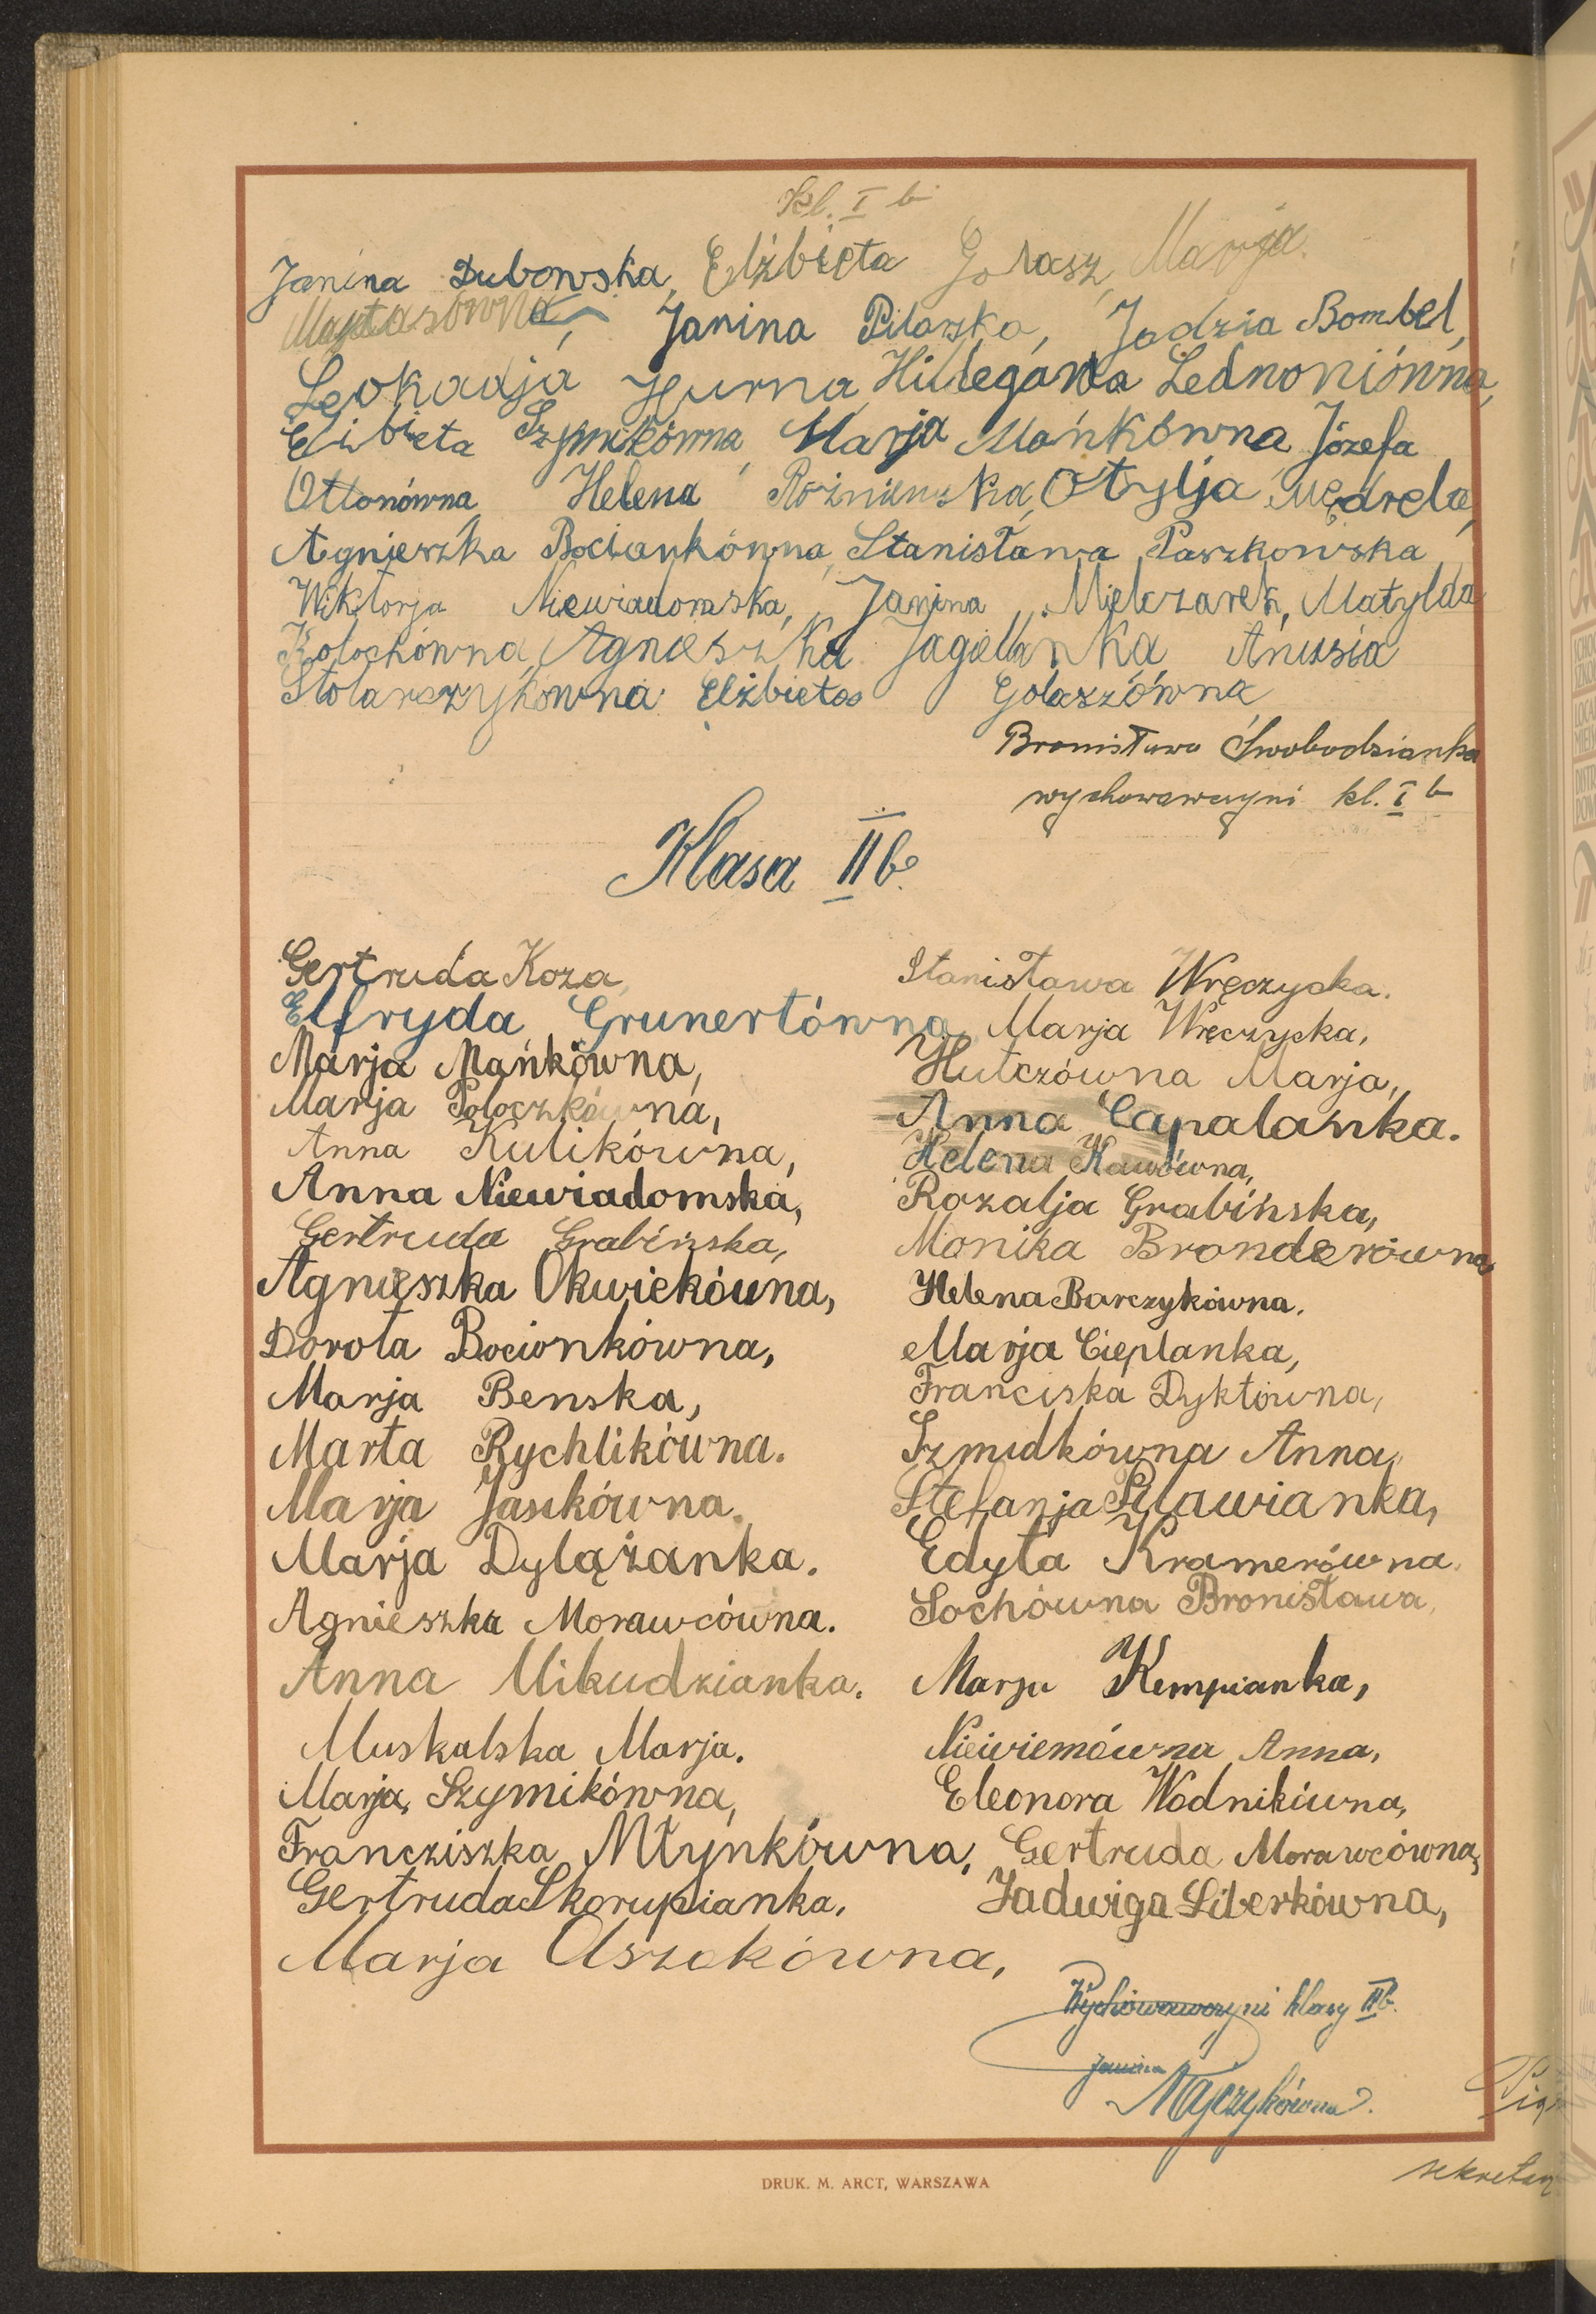 kl. I b
Janina Dubowska, Elżbieta Golasz, Marja
Matasówna, Janina Pilarska, Jadzia Bombel,
Leokadja Hurna, Hildegarda Lednoniówna,
Elżbieta Szymikówna, Marja Mańkówna, Józefa
Ottonówna, Helena Rożnieuska, Otylja Mędrela,
Agnieszka Bociankówna, Stanisława Paszkowska
Wiktorja Niewiadomska, Janina Mielczarek, Matylda
Kołochówna, Agnieszka Jagielanka Anusia
Stolarszykówna Elżbieta Golaszówna
Bronisława Swobodzianka
wychowawczyni kl. I b
Klasa II b.
Gertruda Koza,
Elfryda Grunertówna,
Marja Mańkówna,
Marja Połoczkówna,
Anna Kulikówna,
Anna Niewiadomska,
Gertruda Grabińska,
Agnieszka Okwiekówna,
Dorota Bocionkówna,
Marja Benska,
Marta Rychlikówna.
Marja Jasikówna.
Marja Dylążanka.
Agnieszka Morawcówna.
Anna Mikudzianka.
Muskalska Marja.
Marja Szymikówna,
Francziszka Młynkówna,
Gertruda Skorupianka,
Marja Oszokówna,
Stanisława Wręczycka.
Marja Wręczycka,
Hutczówna Marja,
Anna Capalanka.
Helena Kawówna,
Rozalja Grabińska,
Monika Bronderówna
Helena Barczykówna.
Marja Cieplanka,
Franciska Dyktówna,
Szmidkówna Anna,
Stefanja Pilawianka,
Edyta Kramerówna.
Sochówna Bronisława,
Marja Kempianka,
Niewiemówna Anna,
Eleonora Wodnikówna,
Gertruda Morawcówna,
Jadwiga Liberkówna,
Wychowawczyni klasy IIb.
Janina
Majczykówna.
DRUK. M. ARCT, WARSZAWA